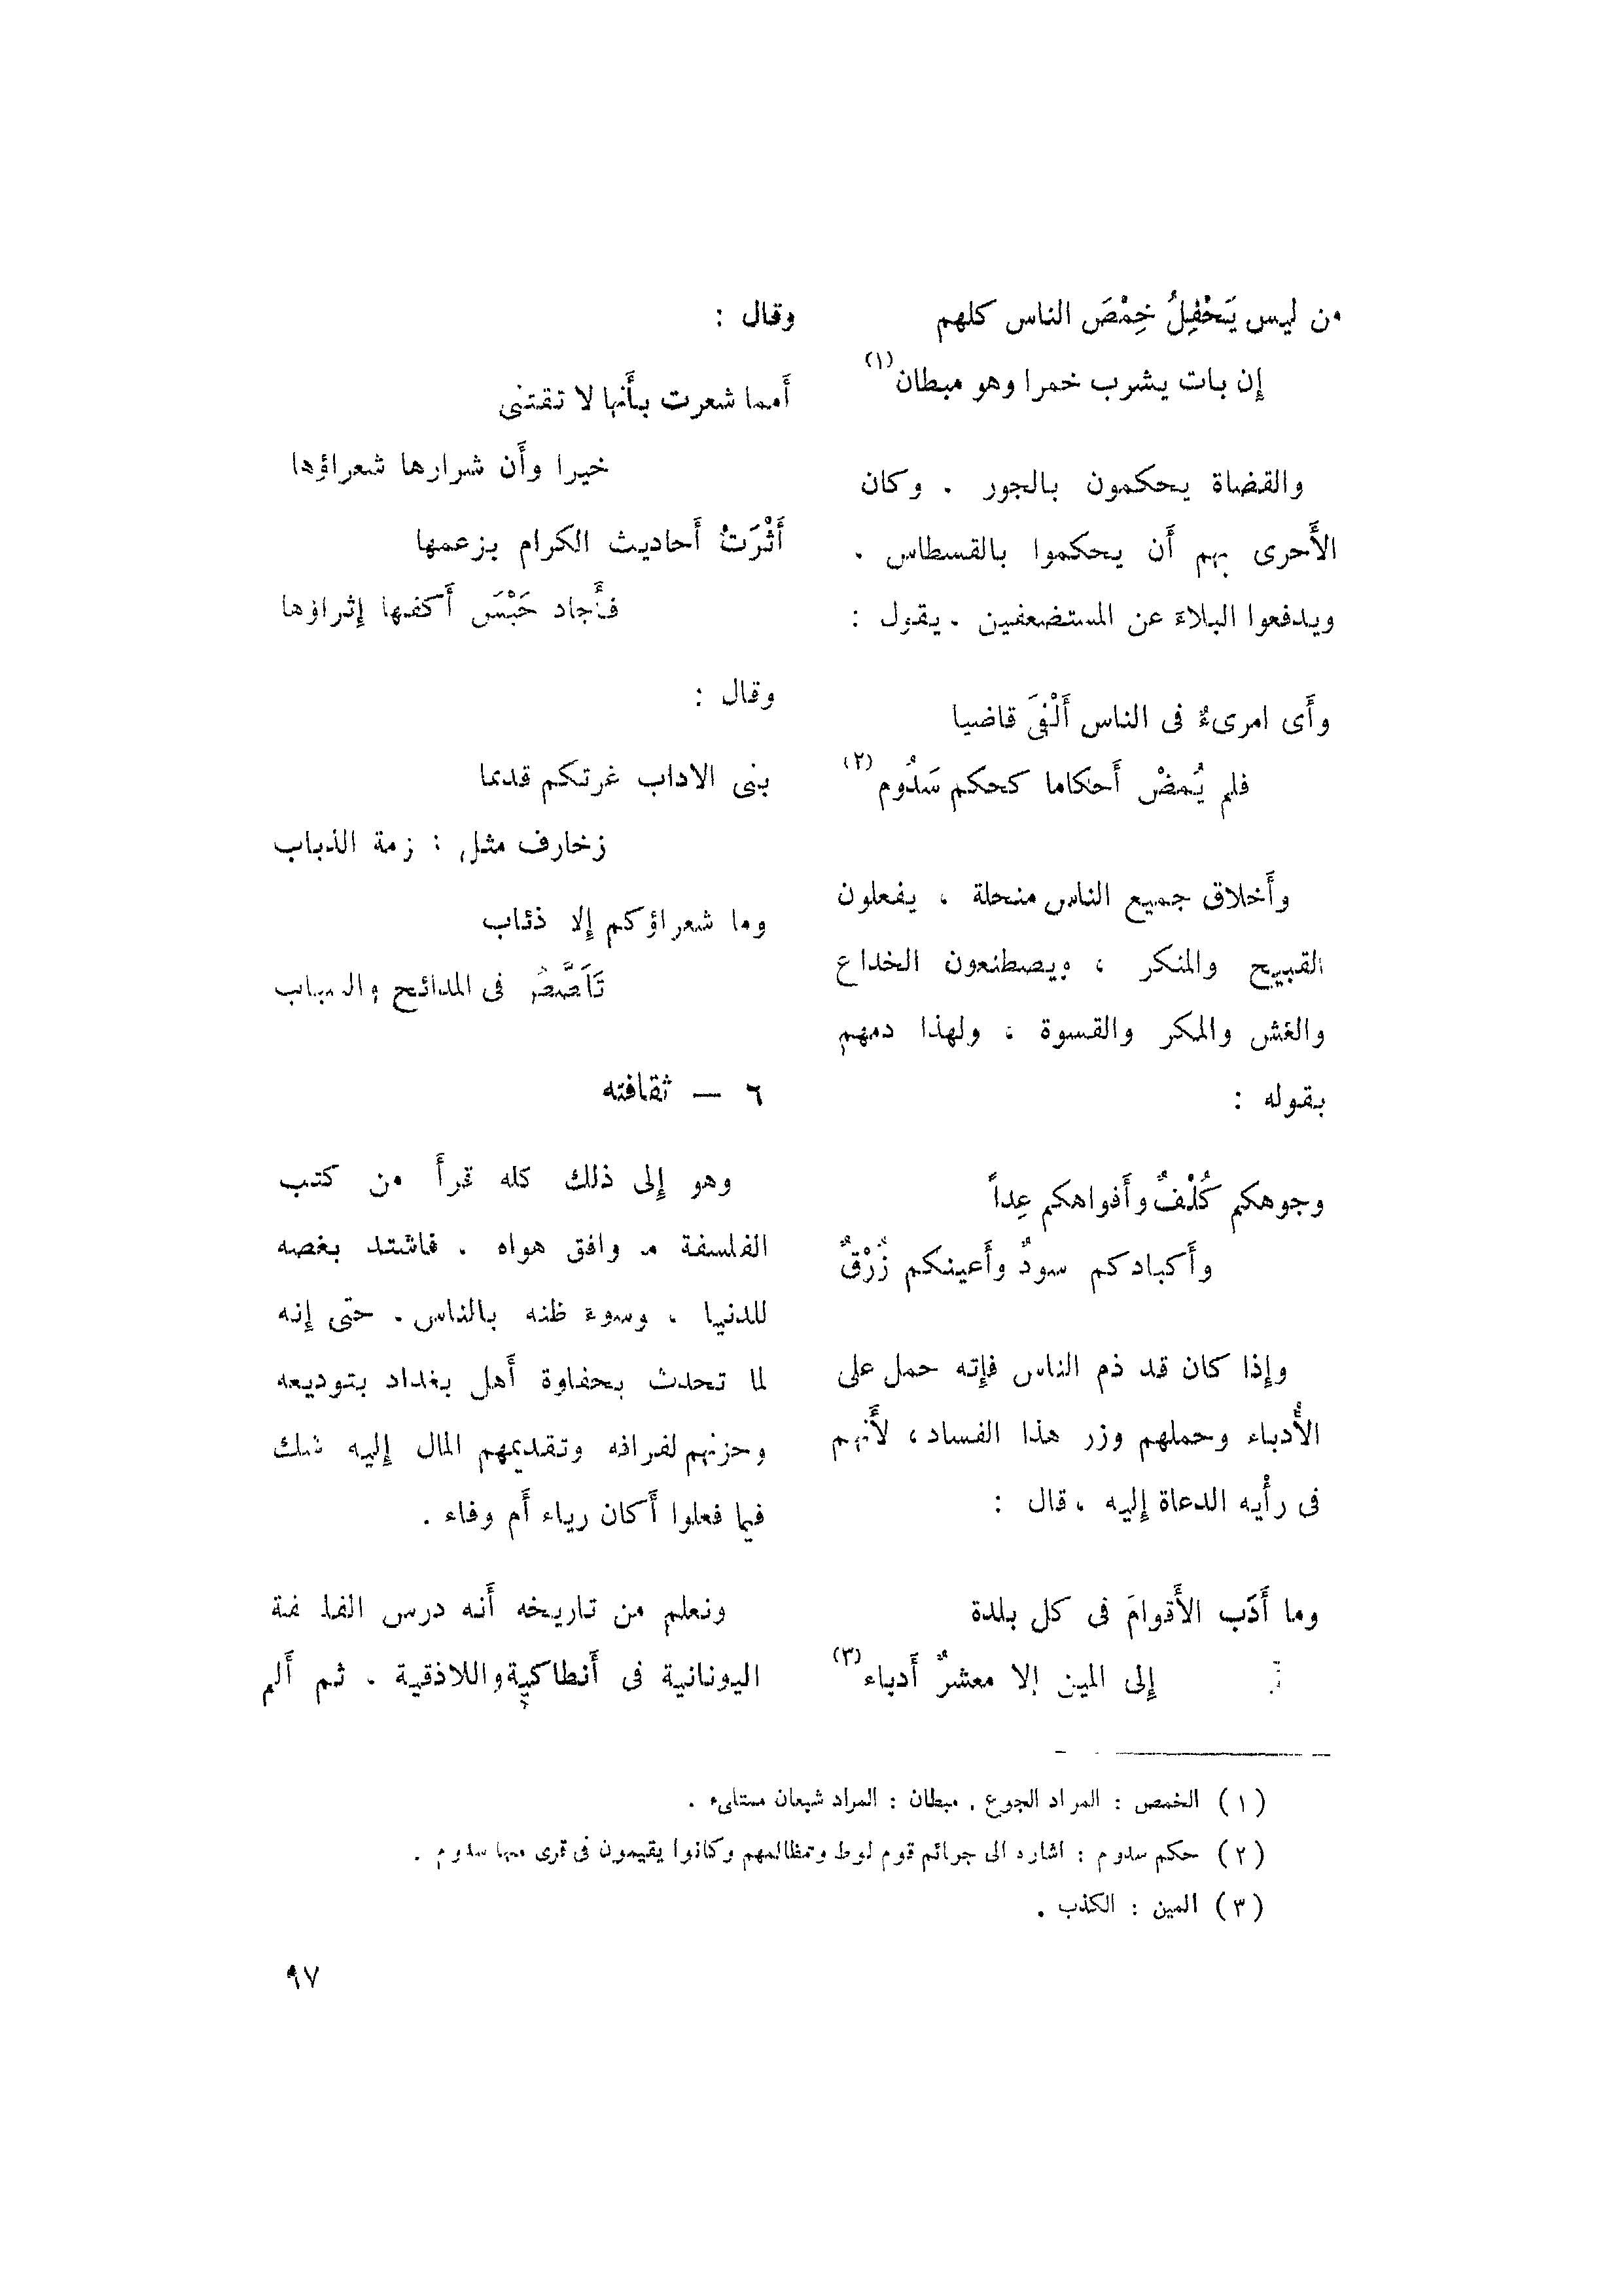 من ليس يَحْفِلُ خِمْصَ الناس كلهم
إن بات يشرب خمرا وهو مبطان (١)
والقضاة يحكمون بالجور . وكان
الأَحرى بهم أَن يحكموا بالقسطاس .
ويدفعوا البلاءَ عن المستضعفين . يقول :
وأَى امرىءٌ فى الناس أَلْفِىَ قاضيا
فلم يُمضْ أَحكاما كحكم سَدُوم (٢)
وأَخلاق جميع الناس منحلة ، يفعلون
القبيح والمنكر ، ويصطنعون الخداع
والغش والمكر والقسوة ، ولهذا دمهم
بقوله :
وجوهكم كُلْفٌ وأَفواهكم عِداً
وأَكبادكم سودٌ وأَعينكم زُرْقٌ
وإذا كان قد ذم الناس فإنه حمل على
الأُدباء وحملهم وزر هذا الفساد ، لأَنهم
فى رأْيه الدعاة إليه ، قال :
وما أَدَب الأَقوامَ فى كل بلدة
إلى المين إلا معشرٌ أَدباء (٣)
وقال :
أَمما شعرت بأَنها لا تقتنى
خيرا وأَن شرارها شعراؤها
أَثْرَتْ أَحاديث الكرام بزعمها
فأَجاد حَبْسَ أَكفها إثراؤها
وقال :
بنى الاداب غرتكم قديما
زخارف مثل زمة الذباب
وما شعراؤكم إلا ذئاب
فى المدائح والسباب
٦ — ثقافته
وهو إلى ذلك كله قرأَ من كتب
الفلسفة وافق هواه . فاشتد بغضه
للدنيا ، وسوء ظنه بالناس . حتى إنه
لما تحدث بحفاوة أَهل بغداد بتوديعه
وحزنهم لفراقه وتقديمهم المال إليه شك
فيما فعلوا أَكان رياء أَم وفاء .
ونعلم من تاريخه أَنه درس الفلسفة
اليونانية فى أَنطاكية واللاذقية . ثم أَلم
(١) الخمص : المراد الجوع . مبطان : المراد شبعان ممتلىء .
(٢) حكم سدوم : اشاره الى جرائم قوم لوط ومظالمهم وكانوا يقيمون فى قرى منها سدوم .
(٣) المين : الكذب .
٩٧